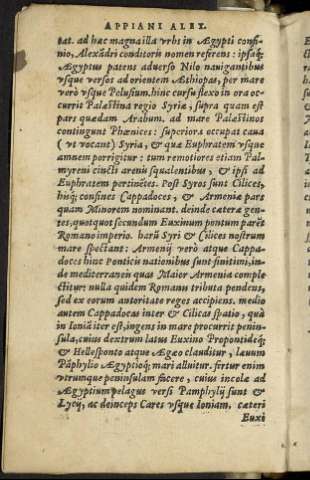 APPIANI ALEX.
tat. ad hæc magna illa vrbs in Ægypti confi-
nio, Alexãdri conditoris nomen referens: ipsaq;
Ægyptus patens aduerso Nilo nauigantibus
vsque versos ad orientem Æthiopas, per mare
verò vsque Pelusium. hinc cursu flexo in ora oc-
currit Palæstina regio Syriæ, supra quam est
pars quædam Arabum. ad mare Palæstinos
contingunt Phœnices: superiora occupat caua
( vt vocant) Syria, & quæ Euphratem vsque
amnem porrigitur: tum remotiores etiam Pal-
myreni cincti arenis squalentibus, & ipsi ad
Euphratem pertinẽtes. Post Syros sunt Cilices,
hisq; confines Cappadoces, & Armeniæ pars
quam Minorem nominant. deinde cæteræ gen-
tes, quotquot secundum Euxinum pontum parẽt
Romano imperio. harũ Syri & Cilices nostrum
mare spectant: Armenij verò atque Cappa-
doces hinc Ponticis nationibus sunt finitimi, in-
de mediterraneis quas Maior Armenia comple
ctitur: nulla quidem Romanis tributa pendens,
sed ex eorum autoritate reges accipiens. medio
autem Cappadocas inter & Cilicas spatio, quà
in Ioniã iter est, ingens in mare procurrit penin-
sula, cuius dextrum latus Euxino Propontideq;
& Hellesponto atque Ægæo clauditur, læuum
Pãphylio Ægyptioq; mari alluitur. fertur enim
vtrunque peninsulam facere, cuius incolæ ad
Ægyptium pelagus versi Pamphylij sunt &
Lycij, ac deinceps Cares vsque Ioniam, cæteri
Euxi